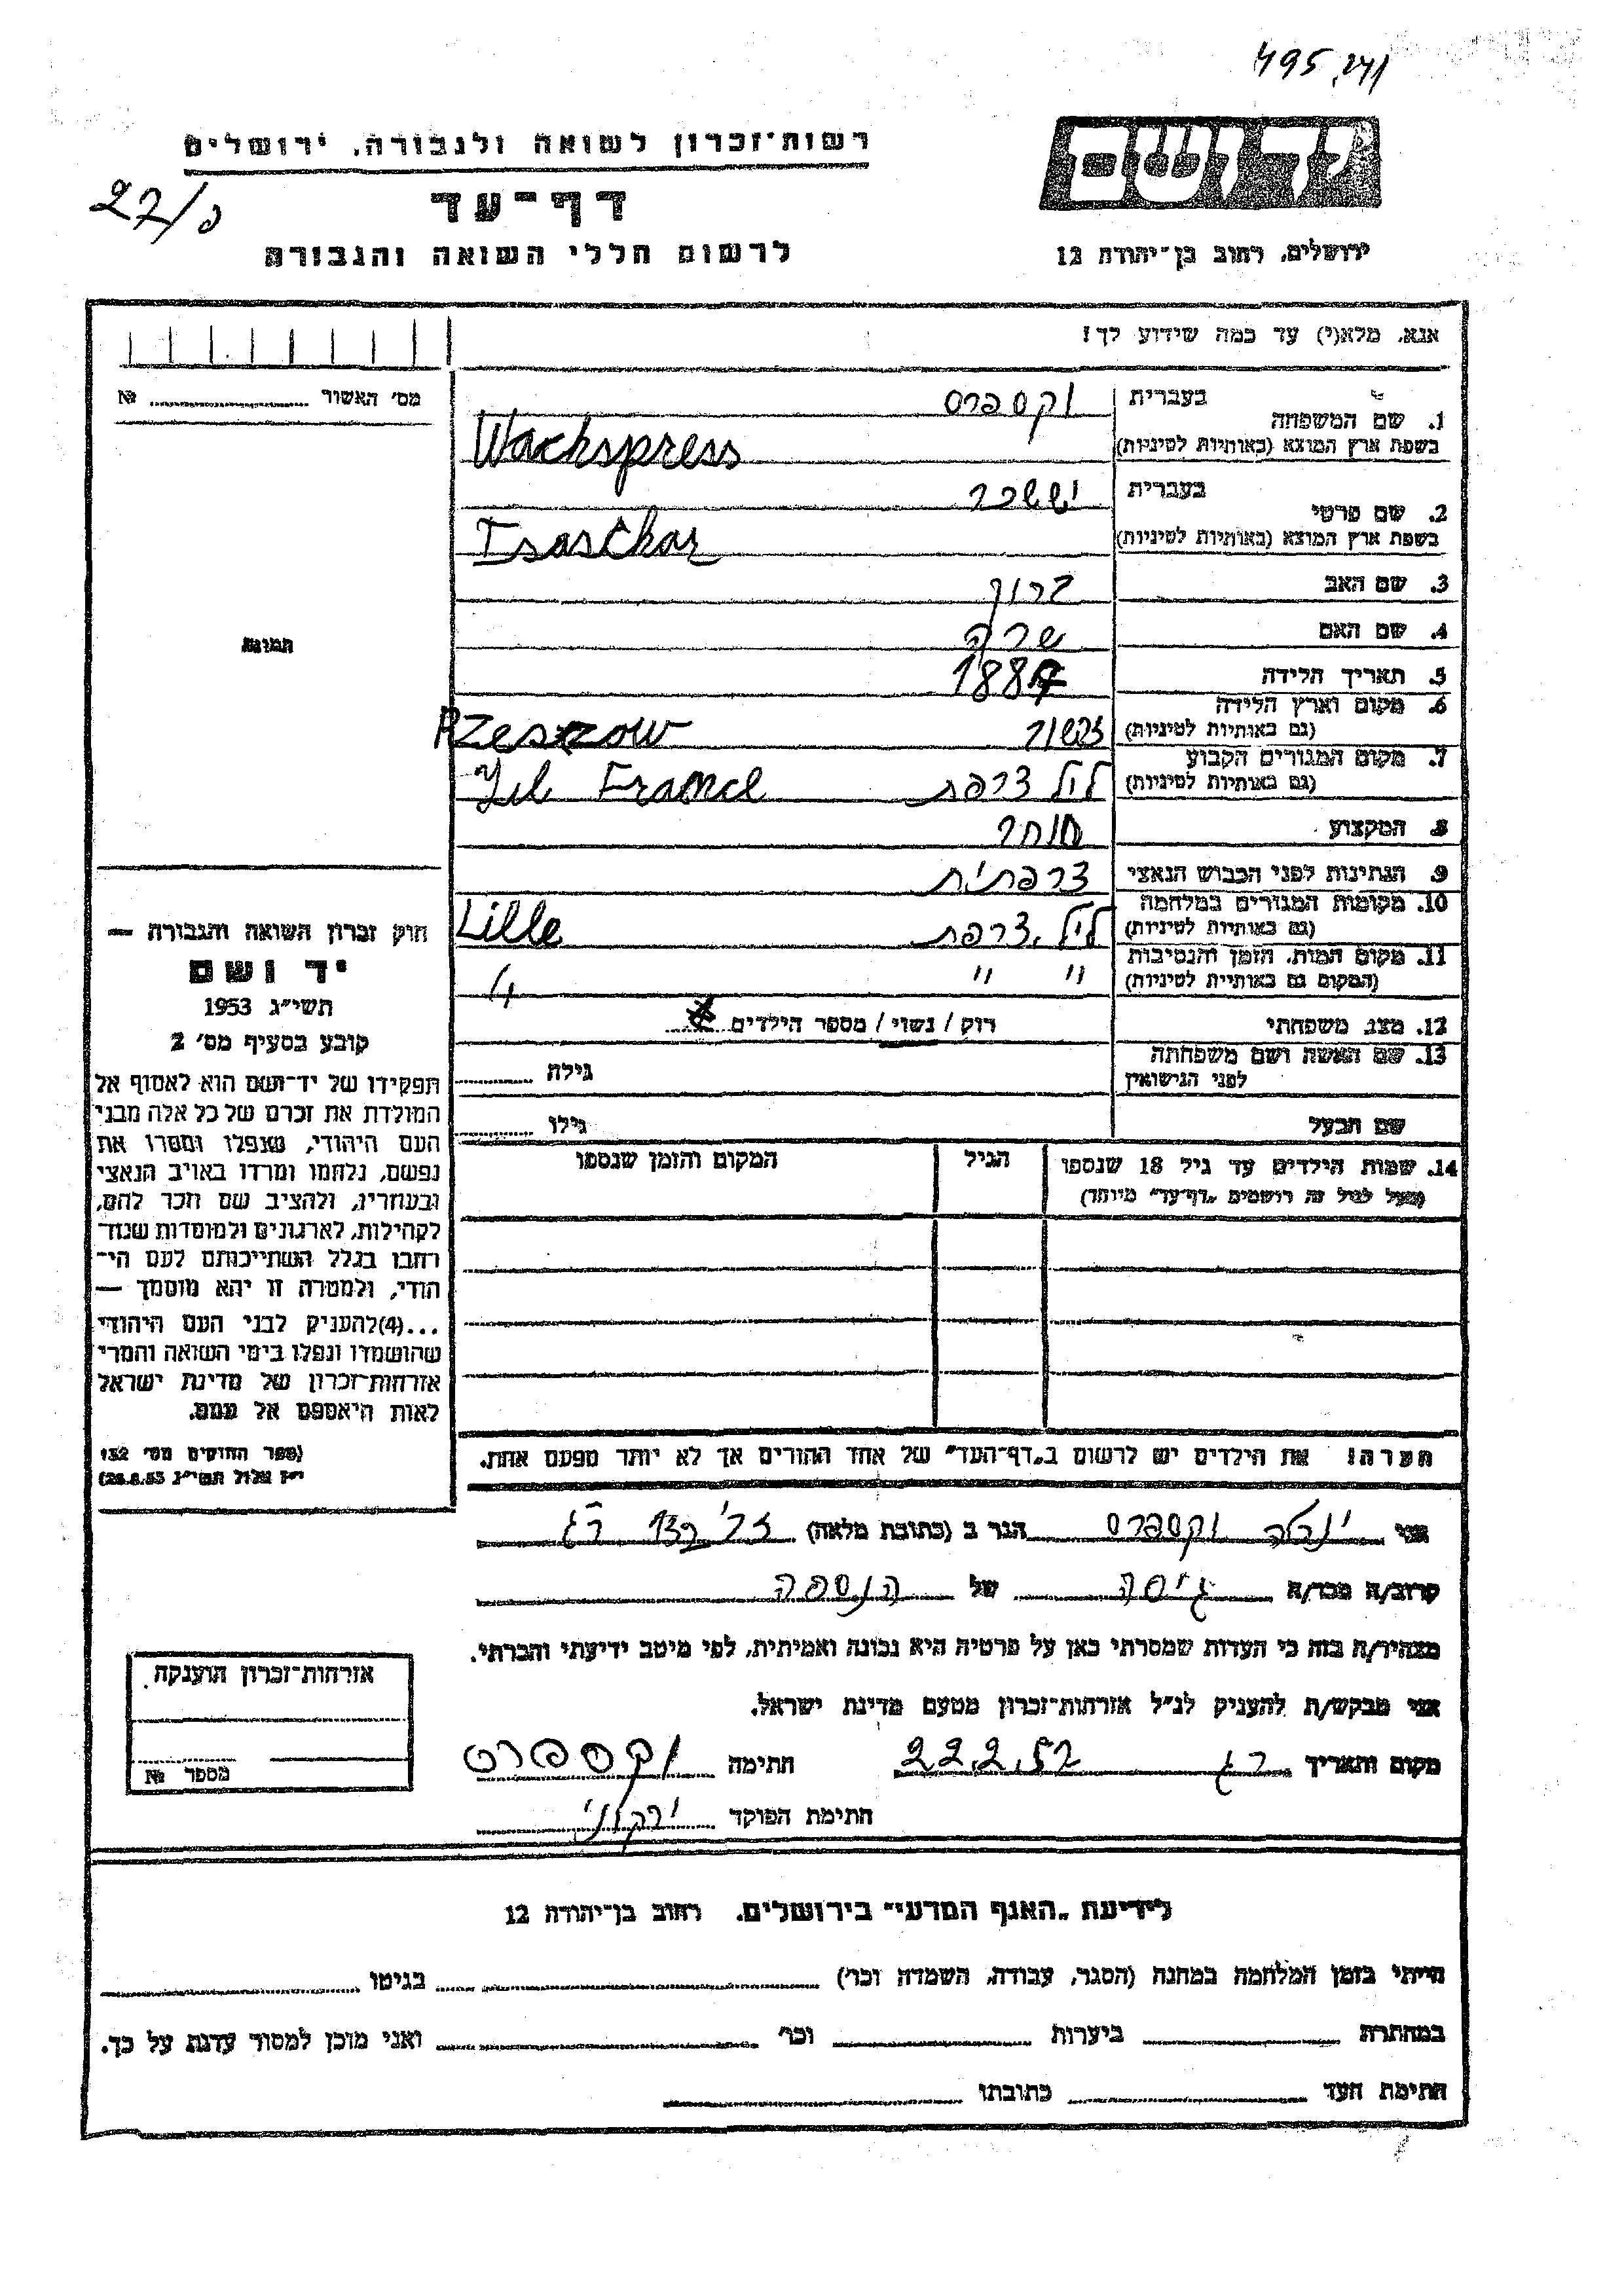 495,241
רשות־זכרון לשואה ולגבורה, ירושלים
דף־עד
27/פ
לרשום חללי השואה והגבורה
ידושם
ירושלים, רחוב בן־יהודה 12
אנא, מלא(י) עד כמה שידוע לך!
מס׳ האשור № 
1. שם המשפחה בעברית וקספרס
בשפת ארץ המוצא (באותיות לטיניות) Wachspress
2. שם פרטי בעברית יששכר
בשפת ארץ המוצא (באותיות לטיניות) Isaschar
3. שם האב ברוך
4. שם האם שרה
5. תאריך הלידה 1887
6. מקום וארץ הלידה
(גם באותיות לטיניות) Rzeszow
7. מקום המגורים הקבוע
(גם באותיות לטיניות) ליל צרפת Lil France
8. המקצוע סוחר
9. הנתינות לפני הכבוש הנאצי צרפתית
10. מקומות המגורים במלחמה
(גם באותיות לטיניות) ליל, צרפת Lille
11. מקום המות, הזמן והנסיבות
(המקום גם באותיות לטיניות) " " "
12. מצב משפחתי רווק / נשוי / מספר הילדים
13. שם האשה ושם משפחתה
לפני הנישואין גילה
שם הבעל גילו
14. שמות הילדים עד גיל 18 שנספו הגיל המקום והזמן שנספו
(מעל לגיל זה רושמים „דף־עד" מיוחד)
הערה! את הילדים יש לרשום ב„דף־העד" של אחד ההורים אך לא יותר מפעם אחת.
תמונה
חוק זכרון השואה והגבורה —
יד ושם
תשי״ג 1953
קובע בסעיף מס׳ 2
תפקידו של יד־ושם הוא לאסוף אל
המולדת את זכרם של כל אלה מבני
העם היהודי, שנפלו ומסרו את
נפשם, נלחמו ומרדו באויב הנאצי
ובעוזריו, ולהציב שם וזכר להם,
לקהילות, לארגונים ולמוסדות שנח־
רבו בגלל השתייכותם לעם הי־
הודי, ולמטרה זו יהא מוסמך —
...(4)להעניק לבני העם היהודי
שהושמדו ונפלו בימי השואה והמרי
אזרחות־זכרון של מדינת ישראל
לאות היאספם אל עמם.
(ספר החוקים מס׳ 132
י״ז אלול תשי״ג 28.8.53)
אני וקספרס הגר ב (כתובת מלאה) רג
קרוב/ה מכר/ה גיסה של הנספה
מצהיר/ה בזה כי העדות שמסרתי כאן על פרטיה היא נכונה ואמיתית, לפי מיטב ידיעתי והכרתי.
אני מבקש/ת להעניק לנ״ל אזרחות־זכרון מטעם מדינת ישראל.
מקום ותאריך רג 22.2.57 חתימה וקספרס
חתימת הפוקד ירקוני
אזרחות־זכרון הוענקה
מספר №
לידיעת „האגף המדעי" בירושלים, רחוב בן־יהודה 12
הייתי בזמן המלחמה במחנה (הסגר, עבודה, השמדה וכו׳) בגיטו
במחתרת ביערות וכו׳ ואני מוכן למסור עדות על כך.
חתימת העד כתובתו